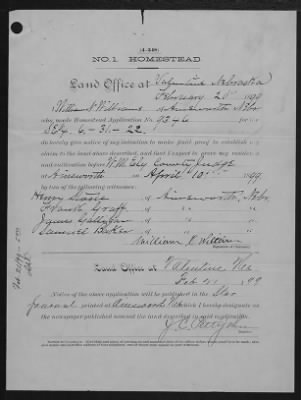 (4-348)
No. 1. HOMESTEAD
Land Office at Valentine Nebraska
February 20th 1899
I William N Williams of Ainsworth Nebr
who made Homestead Application No. 9346 for the
SE¼ 6-31-22
do hereby give notice of my intention to make final proof to establish my
claim to the land above described, and that I expect to prove my residence
and cultivation before W.M. Ely County Judge
at Ainsworth on April 10th 1899
by two of the following witnesses:
Henry of Ainsworth, Nebr.
Frank Graff of " "
James of " "
Samuel Baker of " "
William N. Williams
Land Office at Valentine Neb
Feb 21 1899
Notice of the above application will be published in the Star
Journal printed at Ainsworth Neb which I hereby designate as the
newspaper published nearest the land described in said application.
J. C. Pettijohn
Register.